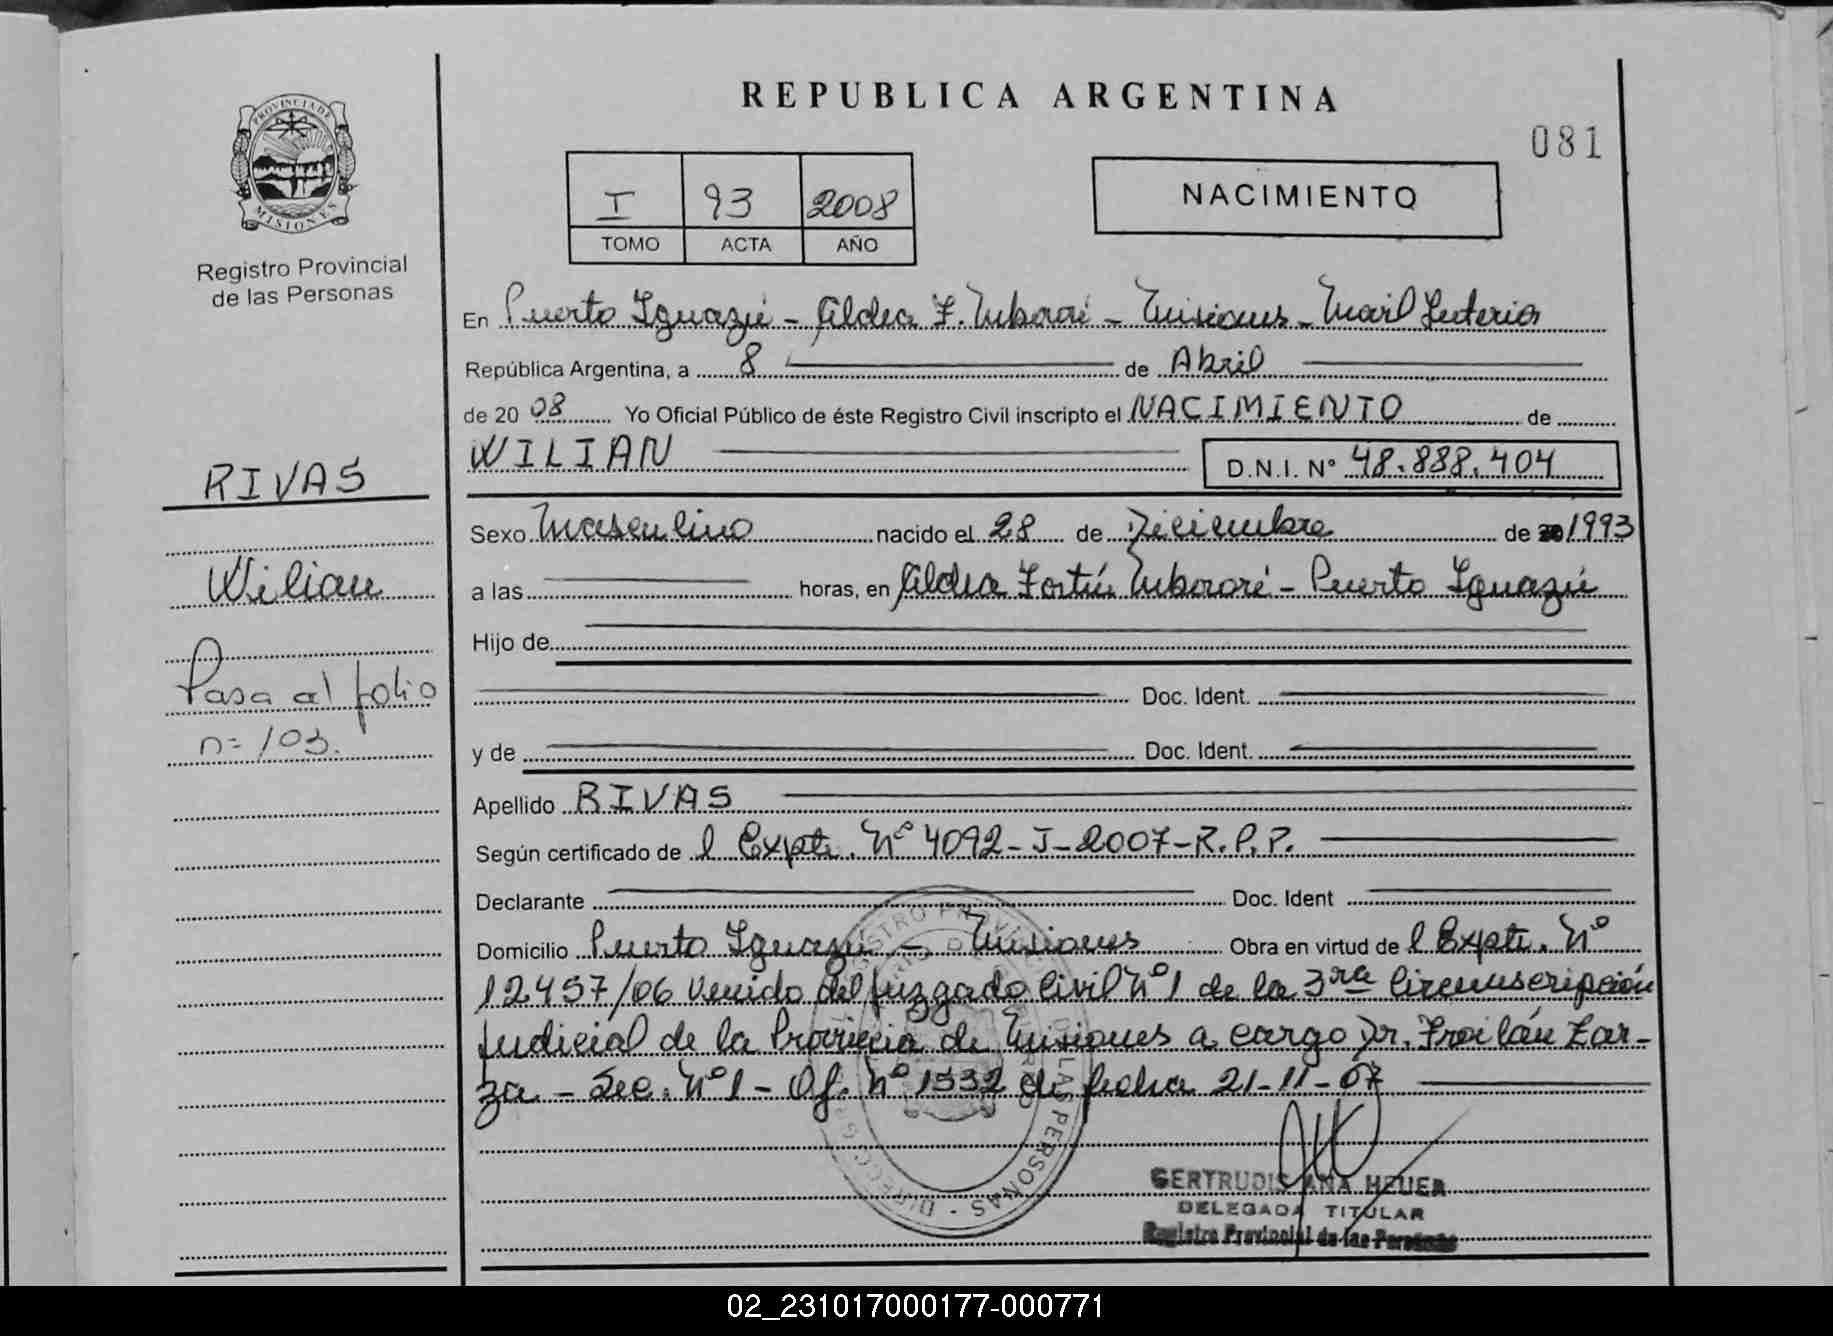 REPUBLICA ARGENTINA
081
PROVINCIA DE
MISIONES
Registro Provincial
de las Personas
I 93 2008
TOMO ACTA AÑO
NACIMIENTO
En Puerto Iguazú - Aldea F. Mbororé - Misiones - Móvil
República Argentina, a 8 de Abril
de 20 08 Yo Oficial Público de éste Registro Civil inscripto el NACIMIENTO de
WILIAN D.N.I. N° 48.888.404
RIVAS
Sexo Masculino nacido el 28 de Diciembre de 1993
Wilian
a las horas, en Aldea Fortín Mbororé - Puerto Iguazú
Hijo de
Pasa al folio
n= 103.
Doc. Ident.
y de Doc. Ident.
Apellido RIVAS
Según certificado de l Expte. N° 4092-J-2007-R.P.P.
Declarante Doc. Ident
Domicilio Puerto Iguazú - Misiones Obra en virtud de l Expte. N°
12457/06 venido del Juzgado Civil N°1 de la 3ra Circunscripción
Judicial de la Provincia de Misiones a cargo Dr. Froilán Zar-
za - Sec. N°1 - Of. N° 1532 de fecha 21-11-07
GERTRUDIS ANA HEUER
DELEGADA TITULAR
Registro Provincial de las Personas
02_231017000177-000771